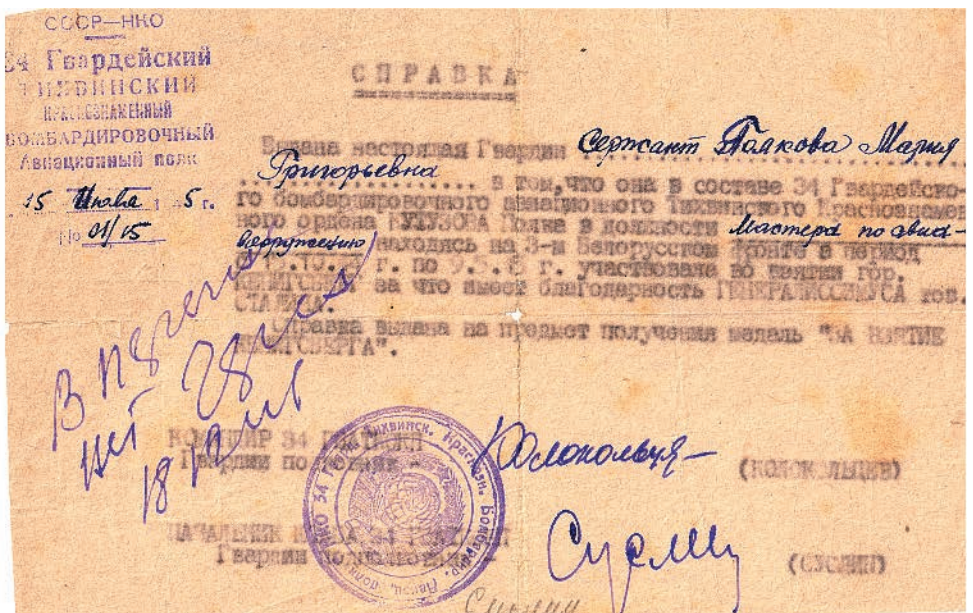 СССР—НКО
34 Гвардейский
ТИХВИНСКИЙ
КРАСНОЗНАМЕННЫЙ
БОМБАРДИРОВОЧНЫЙ
Авиационный полк
15 Июля 1 5 г.
№ 01/15
СПРАВКА
Выдана настоящая Гвардии Сержант Полкова Мария
Григорьевна в том, что она в составе 34 Гвардейско-
го бомбардировочного авиационного Тихвинского Краснознамен
ного ордена КУТУЗОВА Полка в должности Мастера по авиа-
вооружению находясь на 3-м Белорусском фронте в период
г. по 9.5. г. участвовала во взятии гор.
КЕНИГСБЕРГ за что имеет благодарность ГЕНЕРАЛИССИМУСА тов.
СТАЛИНА.
Справка выдана на предмет получения медаль "ЗА ВЗЯТИЕ
КЕНИГСБЕРГА".
В
нет
18
КОМАНДИР 34
Гвардии полковник - Колокольцев (КОЛОКОЛЬЦЕВ)
НАЧАЛЬНИК ШТАБА 34
Гвардии подполковник - Суслин (СУСЛИН)
НКО 34 Гв. Тихвинск. Краснозн. Бомбардир. Авиац. полк